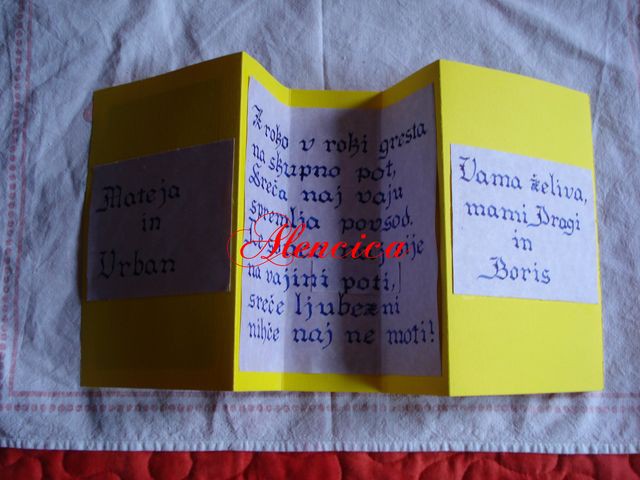 Mateja
in
Urban
Z roko v roki gresta
na skupno pot,
Sreča naj vaju
spremlja povsod.
nije
na vajini poti,
sreče ljubezni
nihče naj ne moti!
Vama želiva,
mami Dragi
in
Boris
Alencica